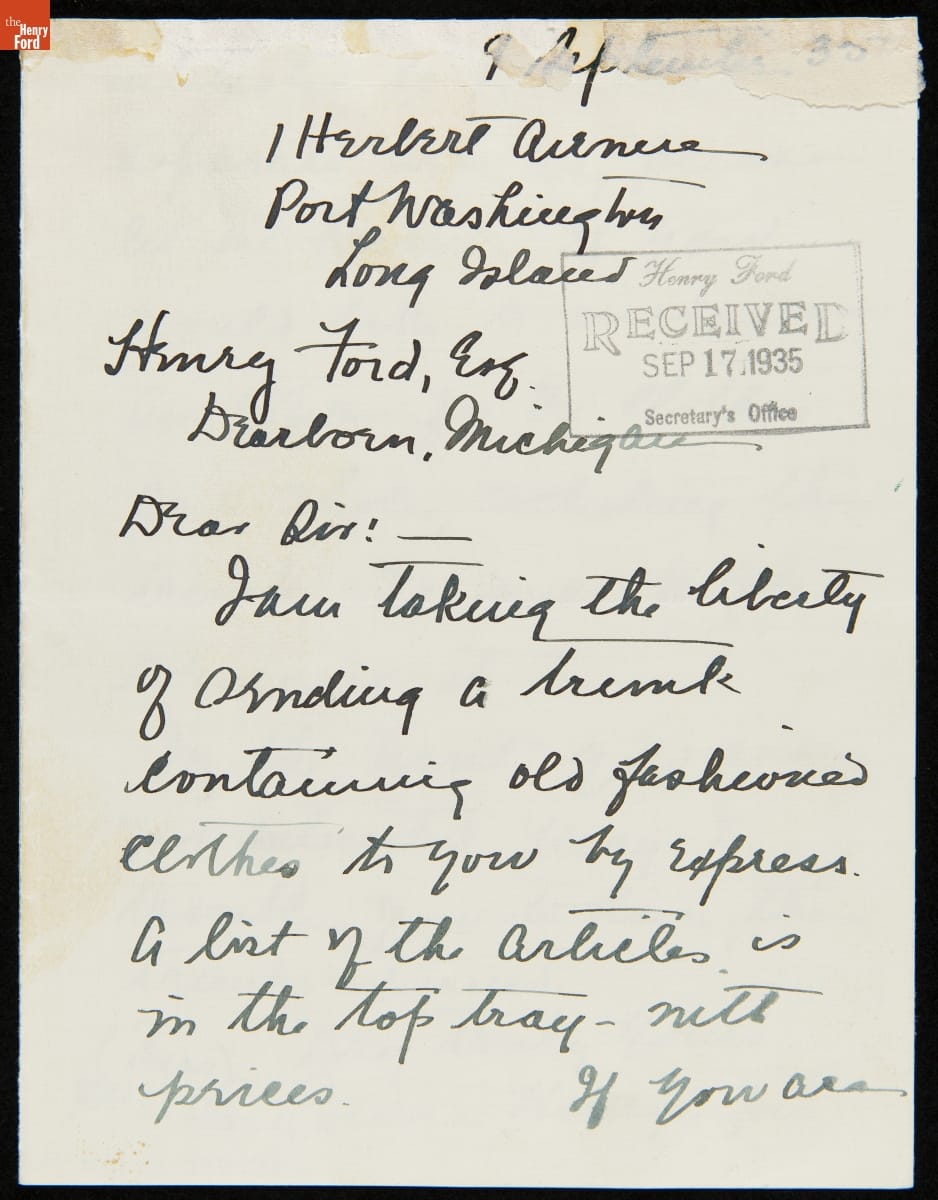 the
Henry
Ford
9 September 35
1 Herbert Avenue
Port Washington
Long Island
Henry Ford
RECEIVED
SEP 17 1935
Secretary's Office
Henry Ford, Esq.
Dearborn, Michigan
Dear Sir! —
I am taking the liberty
of sending a trunk
containing old fashioned
clothes to you by express.
A list of the articles is
in the top tray - with
prices. If you are